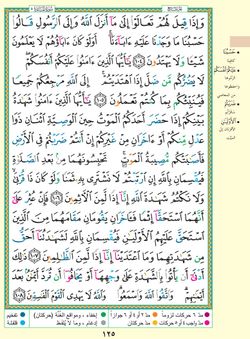 وَإِذَا قِيلَ لَهُمْ تَعَالَوْا۟ إِلَىٰ مَآ أَنزَلَ ٱللَّهُ وَإِلَى ٱلرَّسُولِ قَالُوا۟
حَسْبُنَا مَا وَجَدْنَا عَلَيْهِ ءَابَآءَنَآ أَوَلَوْ كَانَ ءَابَآؤُهُمْ لَا يَعْلَمُونَ
شَيْـًٔا وَلَا يَهْتَدُونَ ١٠٤ يَـٰٓأَيُّهَا ٱلَّذِينَ ءَامَنُوا۟ عَلَيْكُمْ أَنفُسَكُمْ
لَا يَضُرُّكُم مَّن ضَلَّ إِذَا ٱهْتَدَيْتُمْ إِلَى ٱللَّهِ مَرْجِعُكُمْ جَمِيعًا
فَيُنَبِّئُكُم بِمَا كُنتُمْ تَعْمَلُونَ ١٠٥ يَـٰٓأَيُّهَا ٱلَّذِينَ ءَامَنُوا۟ شَهَـٰدَةُ
بَيْنِكُمْ إِذَا حَضَرَ أَحَدَكُمُ ٱلْمَوْتُ حِينَ ٱلْوَصِيَّةِ ٱثْنَانِ ذَوَا
عَدْلٍ مِّنكُمْ أَوْ ءَاخَرَانِ مِنْ غَيْرِكُمْ إِنْ أَنتُمْ ضَرَبْتُمْ فِى ٱلْأَرْضِ
فَأَصَـٰبَتْكُم مُّصِيبَةُ ٱلْمَوْتِ تَحْبِسُونَهُمَا مِنۢ بَعْدِ ٱلصَّلَوٰةِ
فَيُقْسِمَانِ بِٱللَّهِ إِنِ ٱرْتَبْتُمْ لَا نَشْتَرِى بِهِۦ ثَمَنًا وَلَوْ كَانَ ذَا قُرْبَىٰ
وَلَا نَكْتُمُ شَهَـٰدَةَ ٱللَّهِ إِنَّآ إِذًا لَّمِنَ ٱلْـَٔاثِمِينَ ١٠٦ فَإِنْ عُثِرَ عَلَىٰٓ
أَنَّهُمَا ٱسْتَحَقَّآ إِثْمًا فَـَٔاخَرَانِ يَقُومَانِ مَقَامَهُمَا مِنَ ٱلَّذِينَ
ٱسْتَحَقَّ عَلَيْهِمُ ٱلْأَوْلَيَـٰنِ فَيُقْسِمَانِ بِٱللَّهِ لَشَهَـٰدَتُنَآ أَحَقُّ
مِن شَهَـٰدَتِهِمَا وَمَا ٱعْتَدَيْنَآ إِنَّآ إِذًا لَّمِنَ ٱلظَّـٰلِمِينَ ١٠٧ ذَٰلِكَ
أَدْنَىٰٓ أَن يَأْتُوا۟ بِٱلشَّهَـٰدَةِ عَلَىٰ وَجْهِهَآ أَوْ يَخَافُوٓا۟ أَن تُرَدَّ أَيْمَـٰنٌۢ بَعْدَ
أَيْمَـٰنِهِمْ وَٱتَّقُوا۟ ٱللَّهَ وَٱسْمَعُوا۟ وَٱللَّهُ لَا يَهْدِى ٱلْقَوْمَ ٱلْفَـٰسِقِينَ ١٠٨
١٢٥